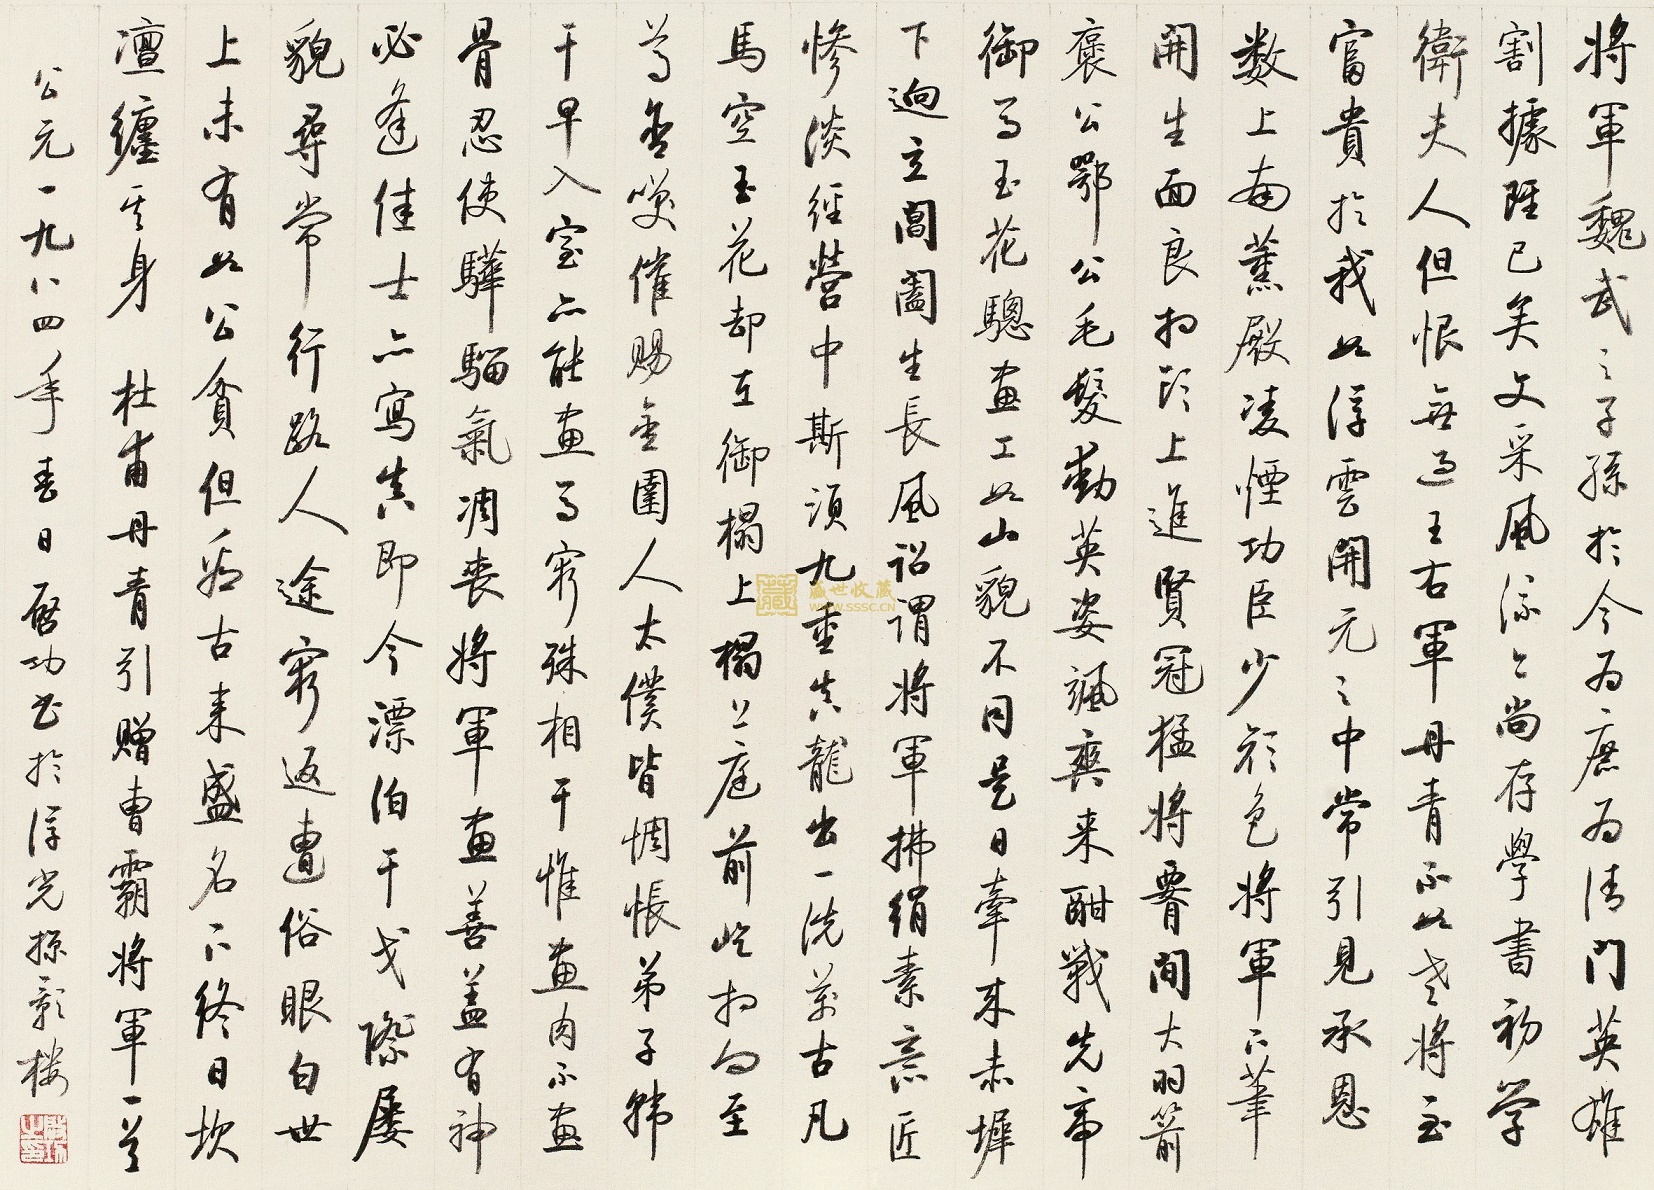 將軍魏武之子孫於今為庶為清門英雄
割據雖已矣文采風流今尚存學書初学
衛夫人但恨無過王右軍丹青不知老將至
富貴於我如浮雲開元之中常引見承恩
數上南薰殿凌煙功臣少顏色將軍下筆
開生面良相頭上進賢冠猛將腰間大羽箭
褒公鄂公毛髮動英姿颯爽來酣戰先帝
御馬玉花驄畫工如山貌不同是日牽來赤墀
下迥立閶闔生長風詔謂將軍拂絹素意匠
慘淡經營中斯須九重真龍出一洗萬古凡
馬空玉花却在御榻上榻上庭前屹相向至
尊含笑催賜金圉人太僕皆惆悵弟子韓
干早入室亦能畫馬窮殊相干惟畫肉不畫
骨忍使驊騮氣凋喪將軍畫善蓋有神
必逢佳士亦寫真即今漂泊干戈際屢
貌尋常行路人途窮返遭俗眼白世
上未有如公貧但看古來盛名下終日坎
壈纏其身 杜甫丹青引贈曹霸將軍一首
公元一九八四年春日啟功書於浮光掠影樓
盛世收藏
WWW.SSSC.CN